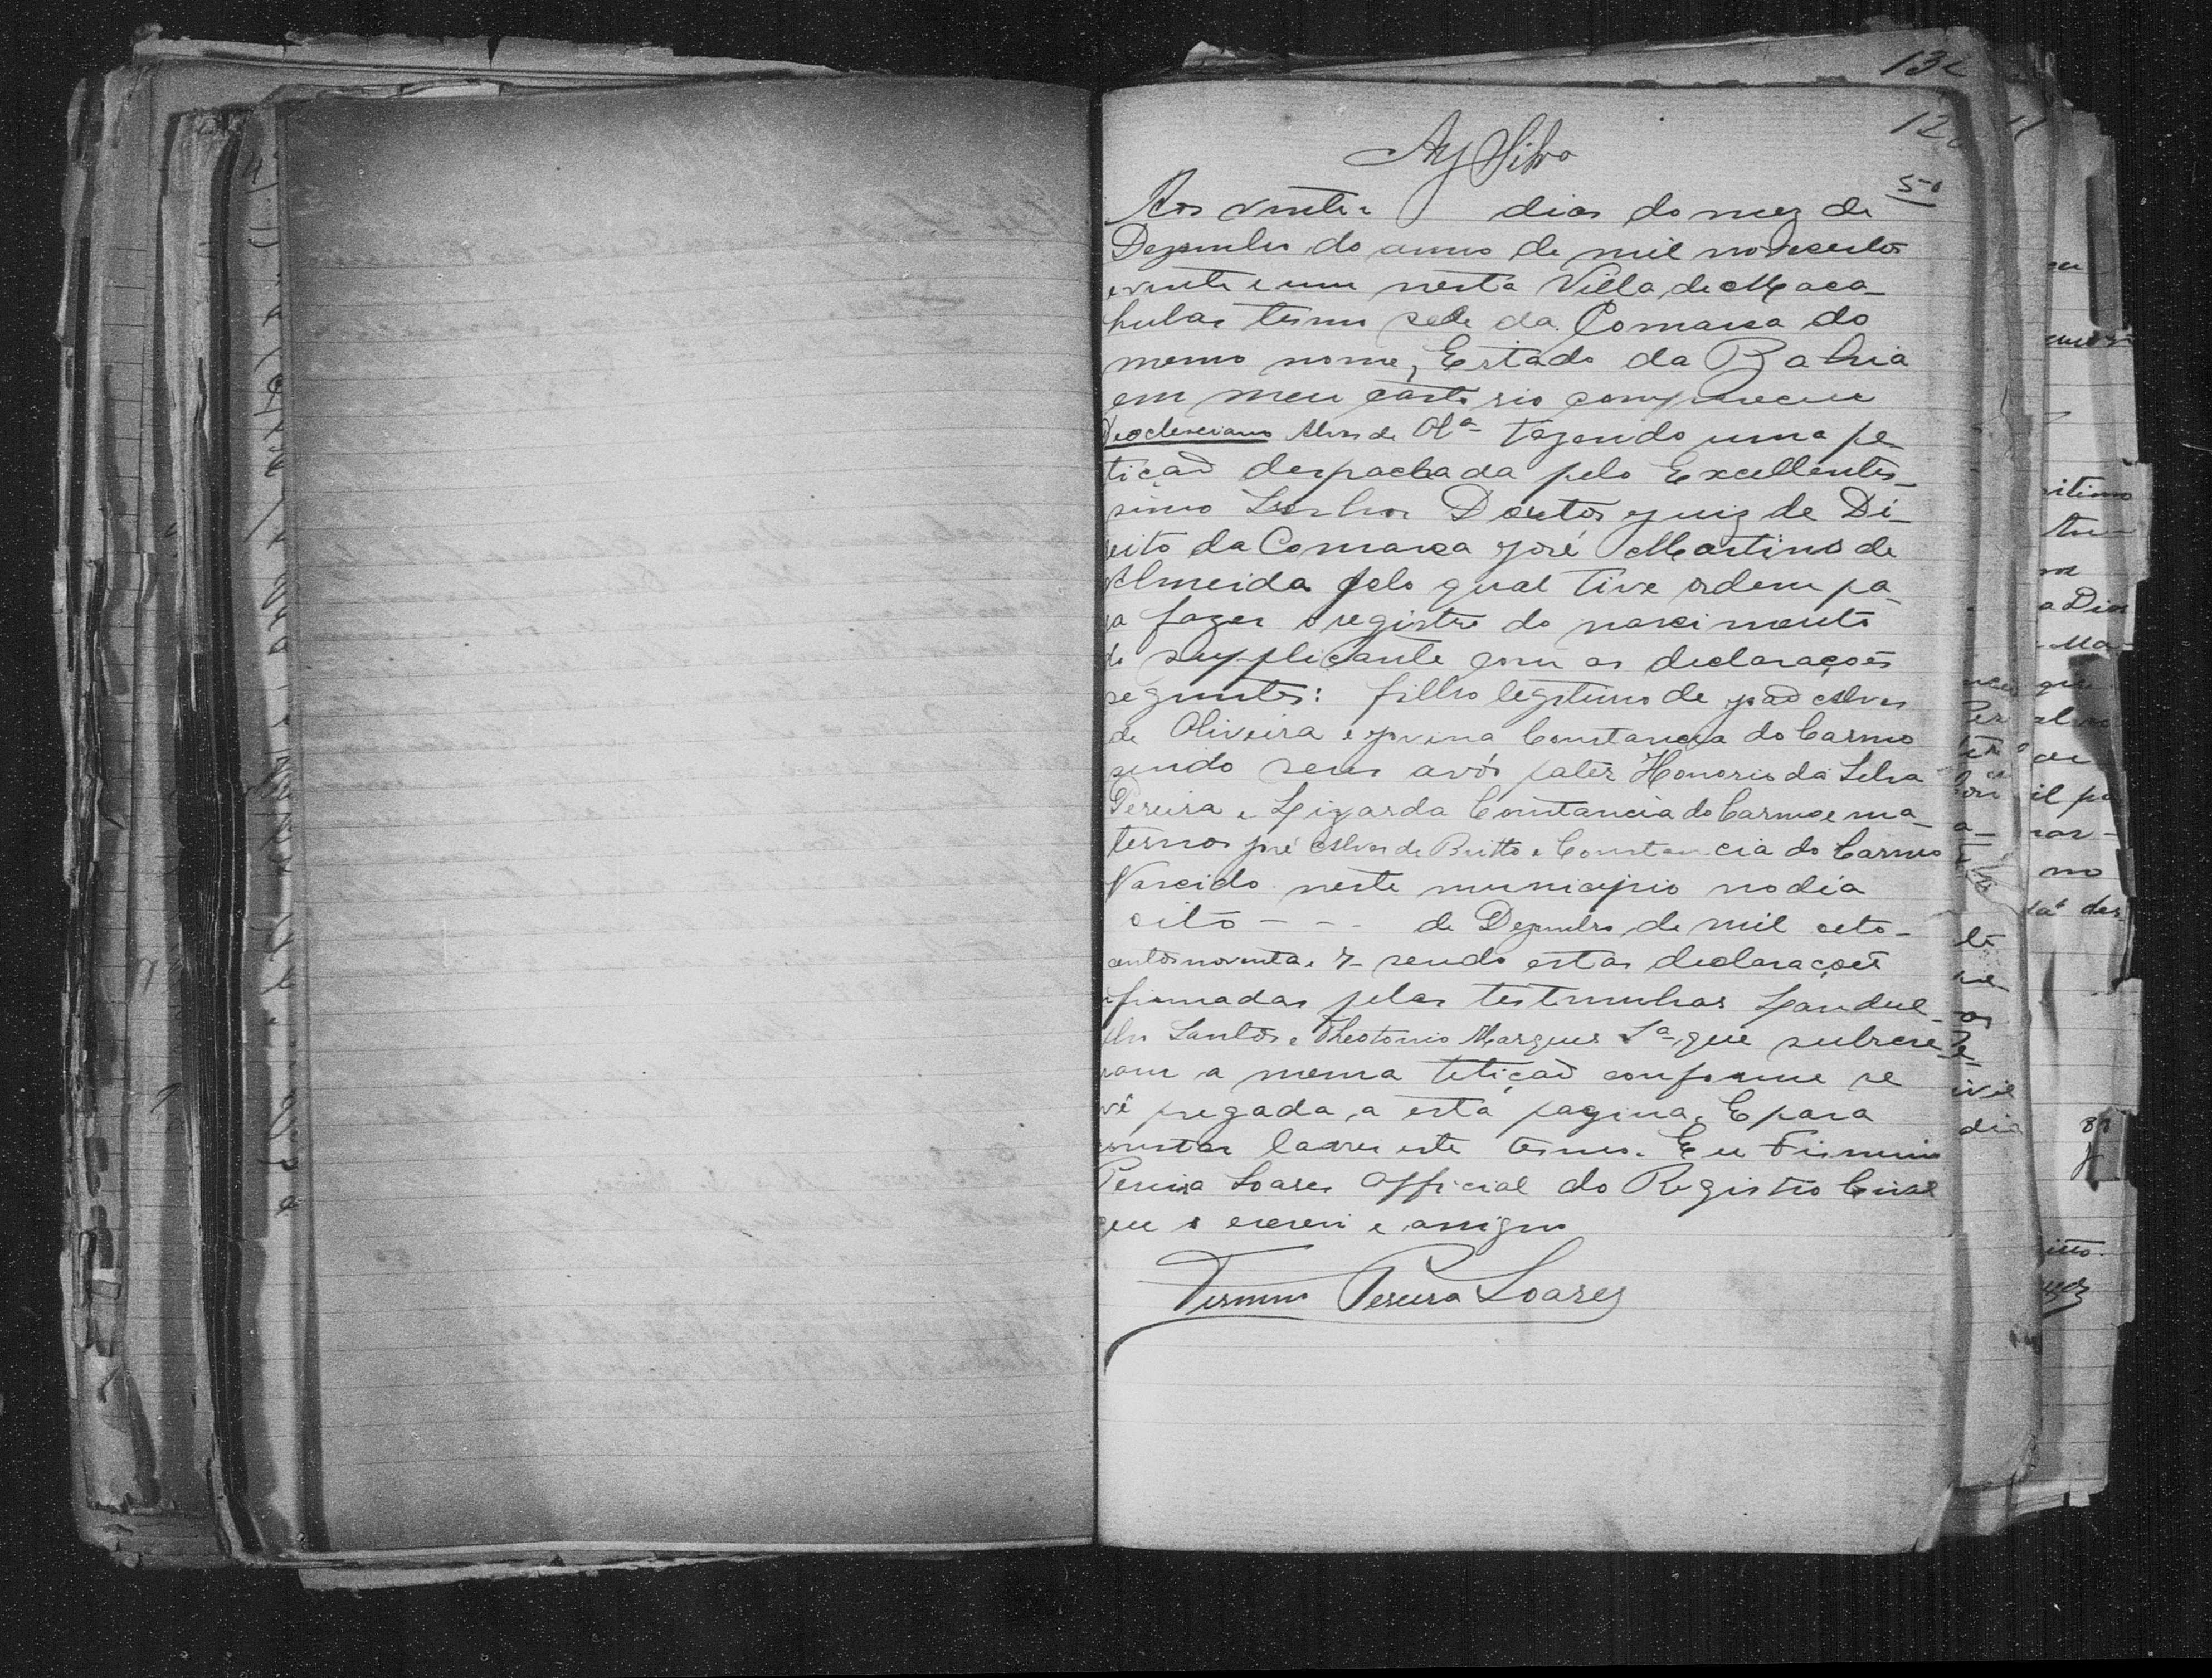 132
12
Ay Silva
50
Aos vinte e dias do mez de
Dezembro do anno de mil novecentos
e vinte e um nesta Villa de Maca-
hubas termo sede da Comarca do
mesmo nome, Estado da Bahia
em meu cartorio compareceu
Deoclesciano Alves de Olª trazendo uma pe
tição despachada pelo Excellentis-
simo Senhor Doutor Juiz de Di-
reito da Comarca José Martins de
Almeida pelo qual tive ordem pa-
ra fazer o registro do nascimento
do supplicante com as declarações
seguintes: filho legitimo de João Alves
de Oliveira e Jovina Constancia do Carmo
sendo seus avós pater Honorio da Silva
Pereira e Lizarda Constancia do Carmo e ma-
ternos José Alves de Britto e Constancia do Carmo
Nascido neste municipio no dia
oito - - de Dezembro de mil oito-
centos noventa e 7 sendo estas declarações
afirmadas pelas testemunhas Landul-
pho Santos e Theotonio Marques Sª que subscre-
veram a mesma petição conforme se
vê pregada a esta pagina. E para
constar lavrei este termo. Eu Firmino
Pereira Soares Official do Registro Civil
que o escrevi e assigno
Firmino Pereira Soares